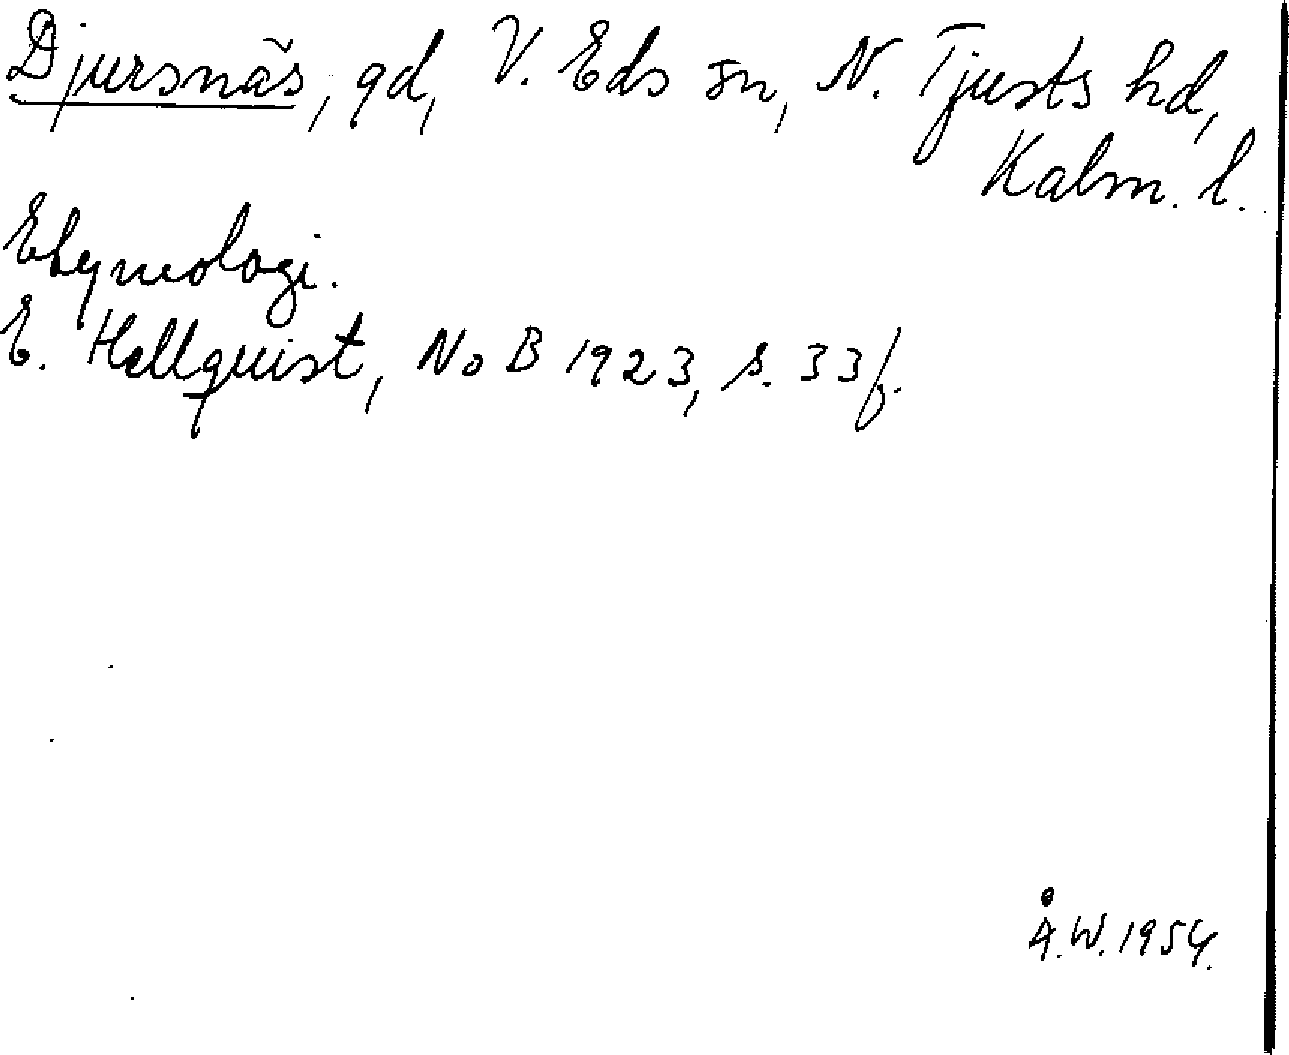 Djursnäs, gd, V. Eds sn, N. Tjusts hd,
Kalm. l.
Etymologi.
E. Hellquist, NoB 1923, s. 33 f.
Å.W. 1954.